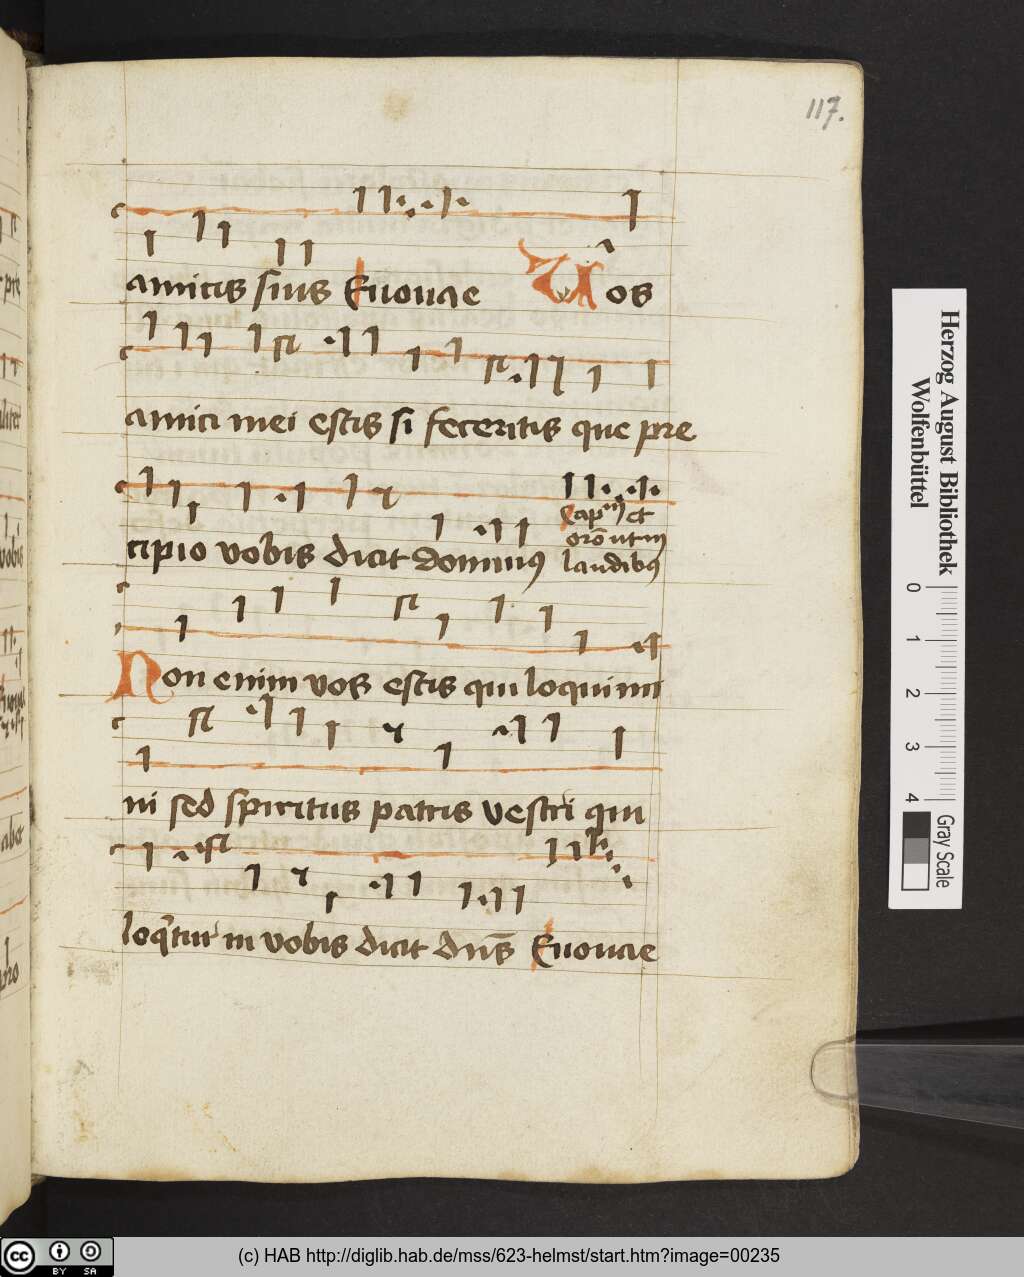 117.
amicis suis Euouae Vos
amici mei estis si feceritis que pre
cipio vobis dicit dominus
Cap^m et
oro ut in
laudibus
Non enim vos estis qui loquimi
ni sed spiritus patris vestri qui
loq̃tur in vobis dicit dñs Euouae
pre
vobis
aber
Herzog August Bibliothek
Wolfenbüttel
0 1 2 3 4
Gray Scale
cc BY SA
(c) HAB http://diglib.hab.de/mss/623-helmst/start.htm?image=00235